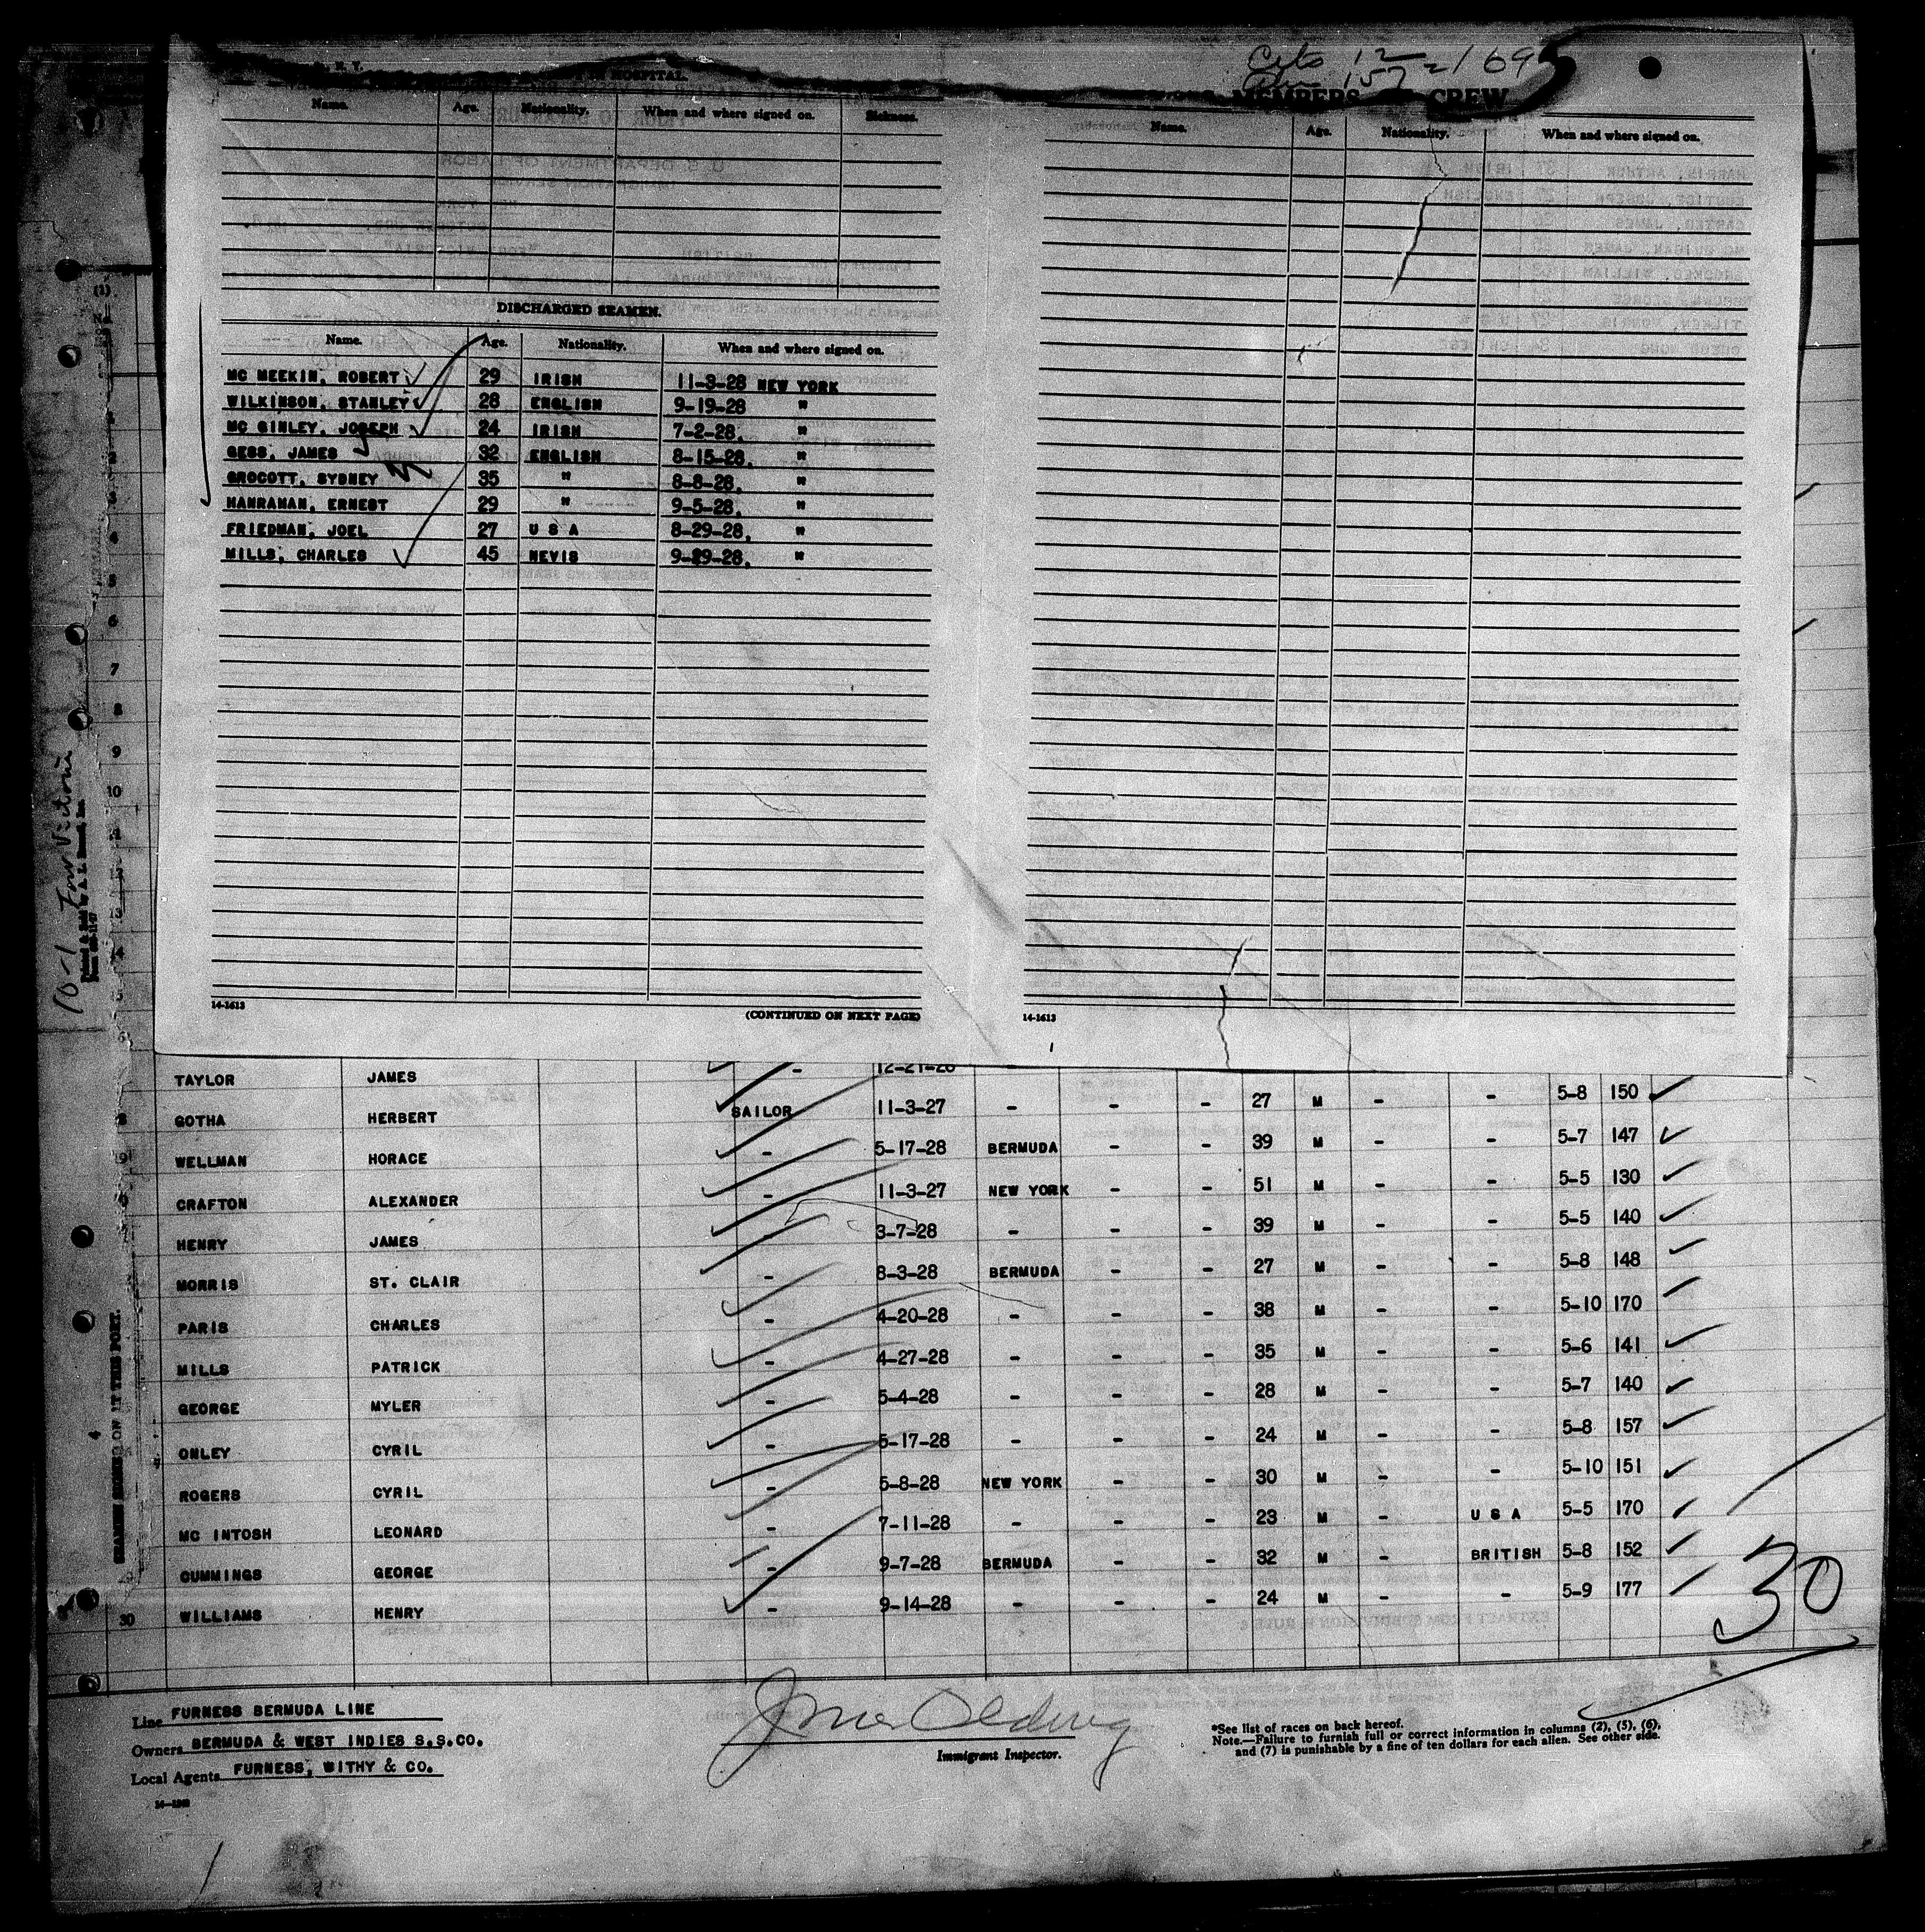 HOSPITAL.
Name. Age. Nationality. When and where signed on. Sickness.
DISCHARGED SEAMEN.
Name. Age. Nationality. When and where signed on.
MC MEEKIN, ROBERT 29 IRISH 11-3-28 NEW YORK
WILKINSON, STANLEY 28 ENGLISH 9-19-28 "
MC GINLEY, JOSEPH 24 IRISH 7-2-28. "
GESS, JAMES 32 ENGLISH 8-15-28. "
GROCOTT, SYDNEY 35 " 8-8-28. "
HANRAHAN, ERNEST 29 " 9-5-28. "
FRIEDMAN, JOEL 27 U S A 8-29-28. "
MILLS, CHARLES 45 NEVIS 9-29-28. "
14-1613
(CONTINUED ON NEXT PAGE)
MEMBERS CREW
Name. Age. Nationality. When and where signed on.
14-1613
TAYLOR JAMES -
GOTHA HERBERT SAILOR 11-3-27 - - - 27 M - - 5-8 150
WELLMAN HORACE - 5-17-28 BERMUDA - - 39 M - - 5-7 147
CRAFTON ALEXANDER - 11-3-27 NEW YORK - - 51 M - - 5-5 130
HENRY JAMES - 3-7-28 - - - 39 M - - 5-5 140
MORRIS ST. CLAIR - 8-3-28 BERMUDA - - 27 M - - 5-8 148
PARIS CHARLES - 4-20-28 - - - 38 M - - 5-10 170
MILLS PATRICK - 4-27-28 - - - 35 M - - 5-6 141
GEORGE MYLER - 5-4-28 - - - 28 M - - 5-7 140
ONLEY CYRIL - 5-17-28 - - - 24 M - - 5-8 157
ROGERS CYRIL - 5-8-28 NEW YORK - - 30 M - - 5-10 151
MC INTOSH LEONARD - 7-11-28 - - - 23 M - U S A 5-5 170
CUMMINGS GEORGE - 9-7-28 BERMUDA - - 32 M - BRITISH 5-8 152
30 WILLIAMS HENRY - 9-14-28 - - - 24 M - - 5-9 177
30
Line FURNESS BERMUDA LINE
Owners BERMUDA & WEST INDIES S.S.CO.
Local Agents FURNESS, WITHY & CO.
Immigrant Inspector.
*See list of races on back hereof.
Note.—Failure to furnish full or correct information in columns (2), (5), (6),
and (7) is punishable by a fine of ten dollars for each alien. See other side.